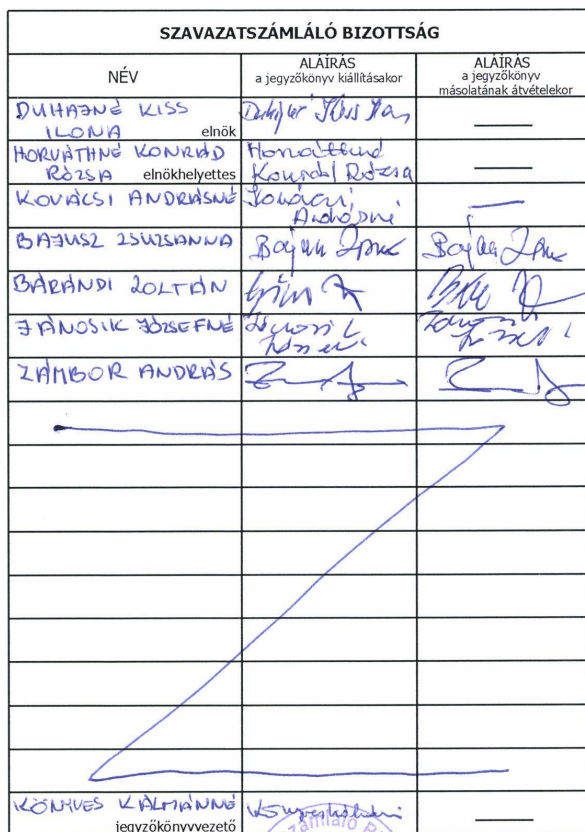 SZAVAZATSZÁMLÁLÓ BIZOTTSÁG
NÉV
ALÁÍRÁS
a jegyzőkönyv kiállításakor
ALÁÍRÁS
a jegyzőkönyv
másolatának átvételekor
DUHAJNÉ KISS
ILONA elnök
HORVÁTHNÉ KONRÁD
RÓZSA elnökhelyettes
Horváthné
Konrád Rózsa
KOVÁCSI ANDRÁSNÉ
Kovácsi
Andrásné
BAJUSZ ZSUZSANNA
BÁRÁNDI ZOLTÁN
JÁNOSIK JÓZSEFNÉ
ZÁMBOR ANDRÁS
KÖNYVES KÁLMÁNNÉ
jegyzőkönyvvezető